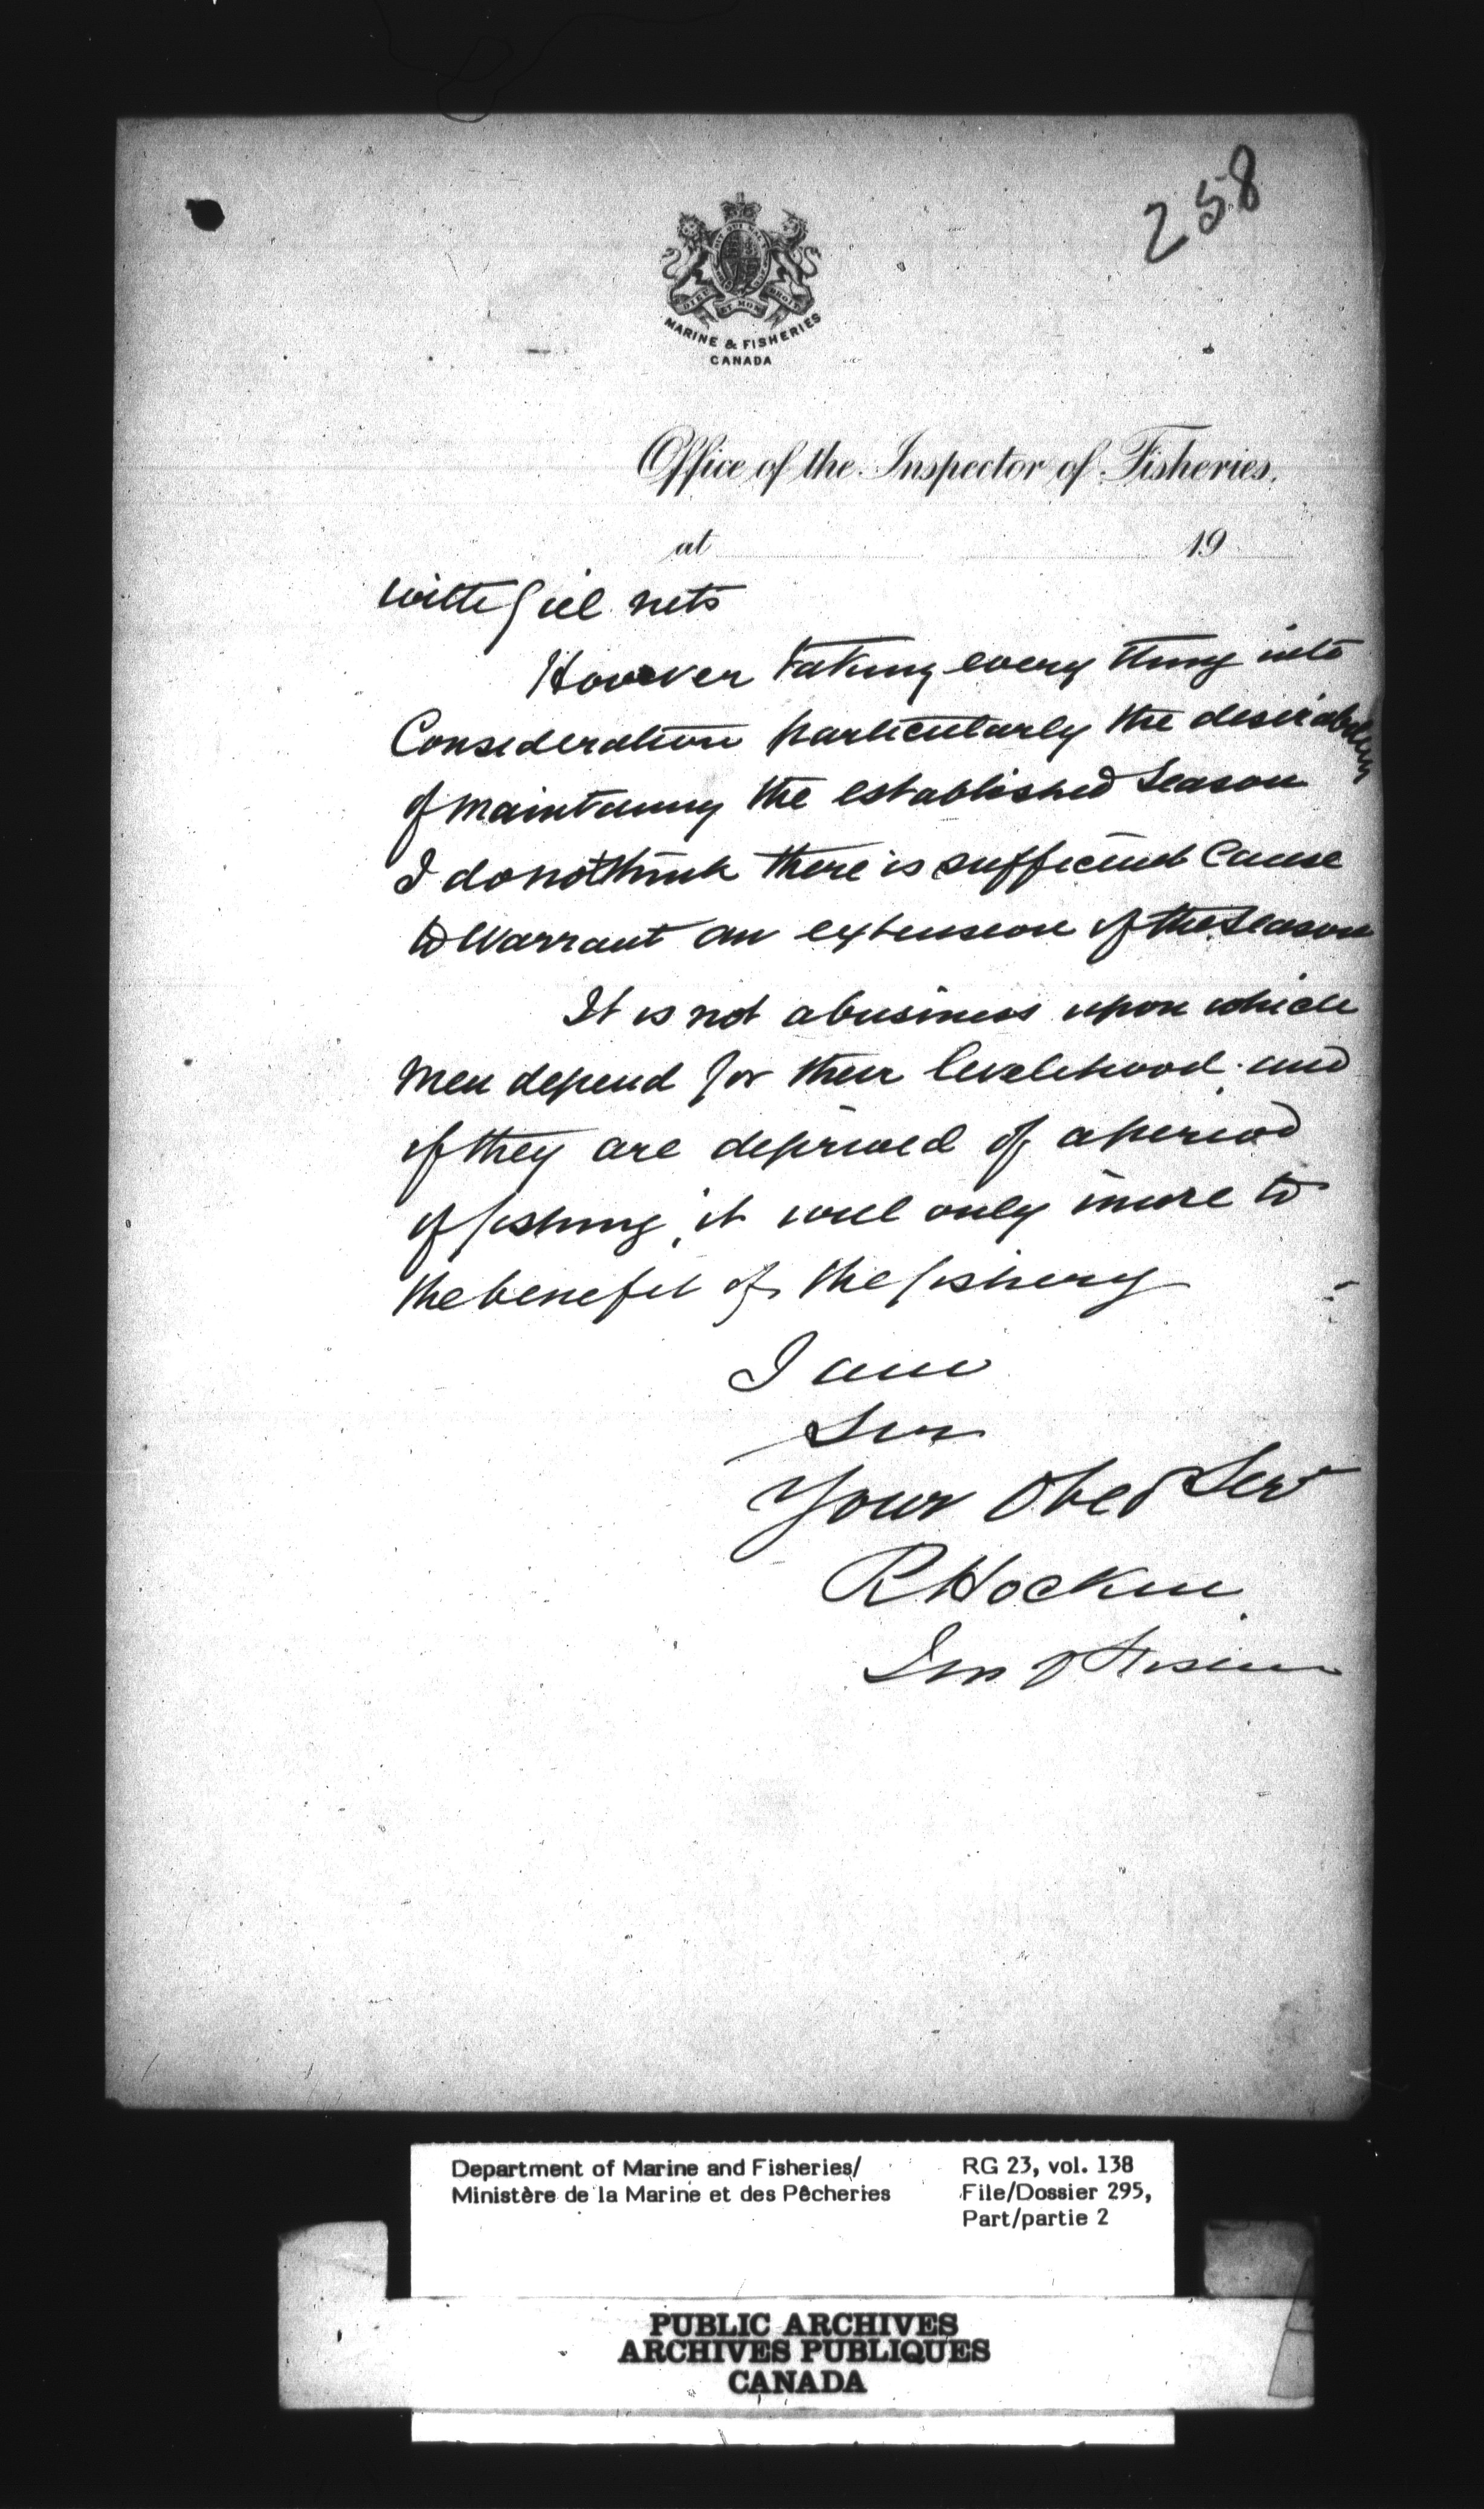 258
DIEU ET MON DROIT
MARINE & FISHERIES
CANADA
Office of the Inspector of Fisheries,
at 19
with Gill nets
However taking every thing into
Consideration particularly the desirability
of maintaining the established Season
I do not think there is sufficient Cause
to Warrant an extension of the Season
It is not a business upon which
men depend for their livelihood. and
if they are deprived of a period
of fishing, it will only inure to
the benefit of the fishery
I am
Sir
Your Obed Servt
R Hockin
Ins of Fisheries
Department of Marine and Fisheries/
Ministère de la Marine et des Pêcheries
RG 23, vol. 138
File/Dossier 295,
Part/partie 2
PUBLIC ARCHIVES
ARCHIVES PUBLIQUES
CANADA